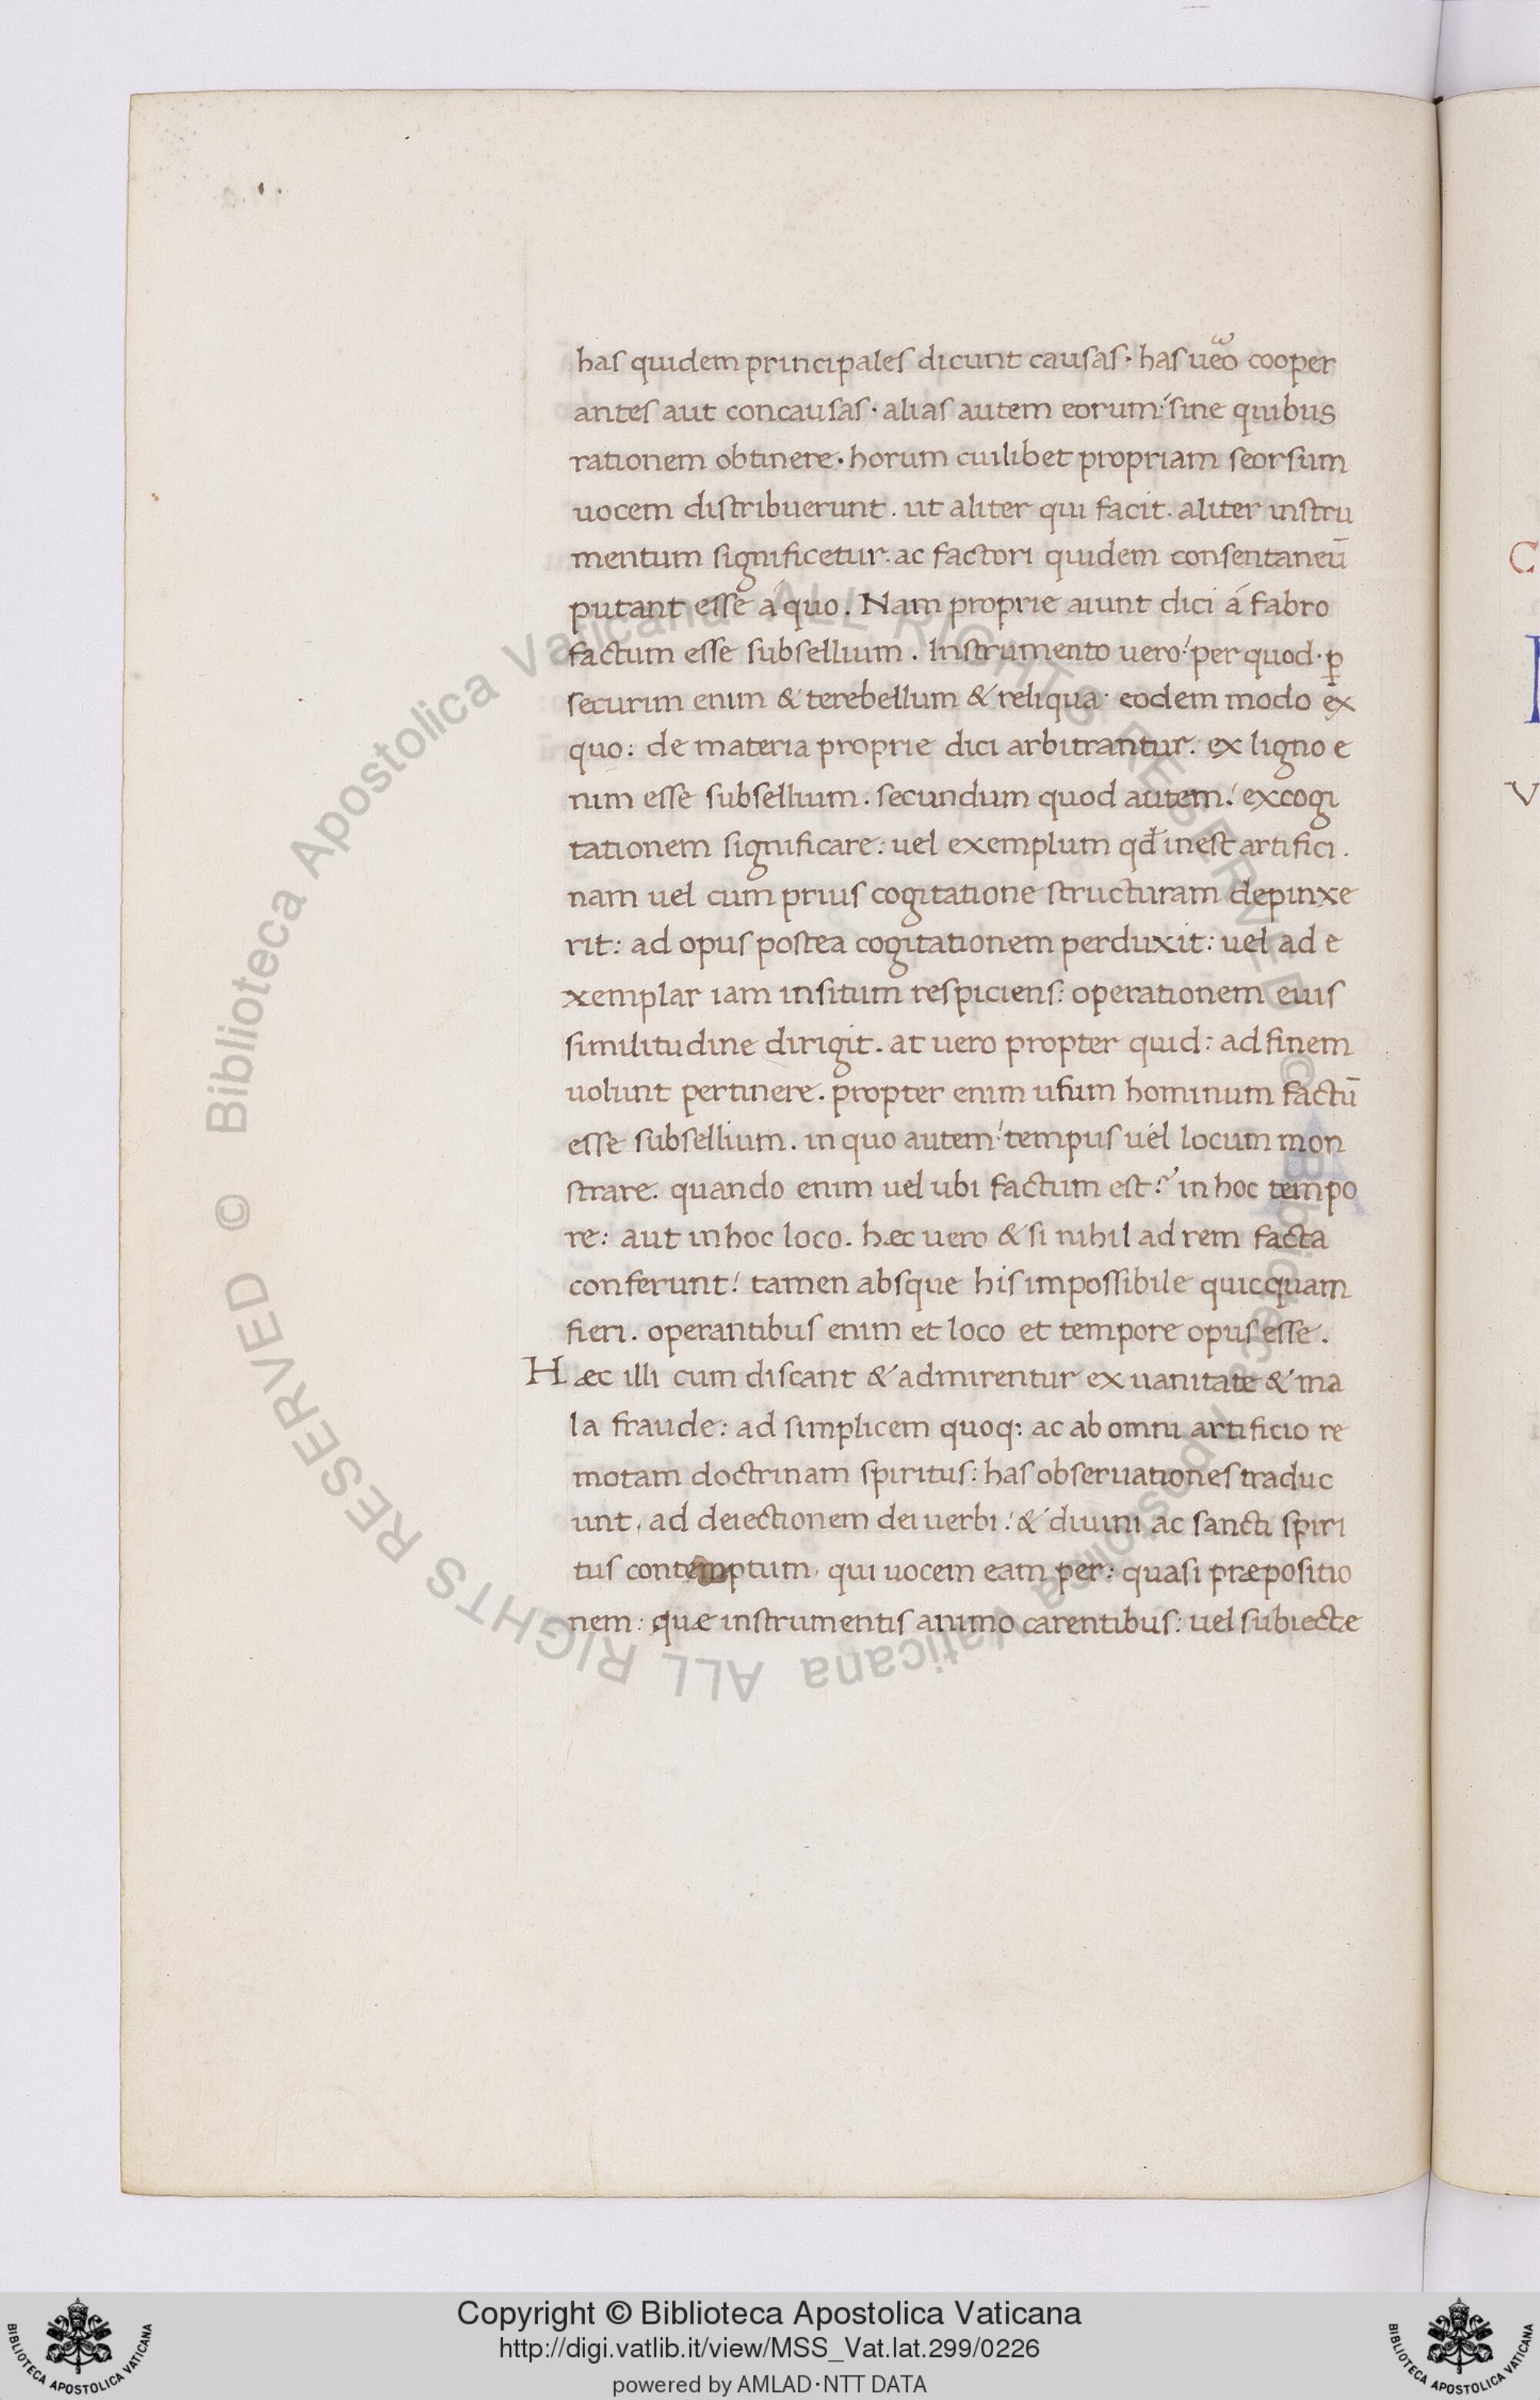 has quidem principales dicunt causas· has uero cooper
antes aut concausas· alias autem eorum: sine quibus
rationem obtinere· horum cuilibet propriam seorsum
uocem distribuerunt. ut aliter qui facit. aliter instru
mentum significetur. ac factori quidem consentaneū
putant esse á quo. Nam proprie aiunt dici á fabro
factum esse subsellium. Instrumento uero: per quod· ꝑ
securim enim & terebellum & reliqua· eodem modo ex
quo: de materia proprie dici arbitrantur. ex ligno e
nim esse subsellium. secundum quod autem: excogi
tationem significare: uel exemplum qđ inest artifici.
nam uel cum prius cogitatione structuram depinxe
rit: ad opus postea cogitationem perduxit: uel ad e
xemplar iam insitum respiciens: operationem eius
similitudine dirigit. at uero propter quid: ad finem
uolunt pertinere. propter enim usum hominum factū
esse subsellium. in quo autem: tempus uel locum mon
strare. quando enim uel ubi factum est? in hoc tempo
re: aut in hoc loco. hæc uero & si nihil ad rem facta
conferunt: tamen absque his impossibile quicquam
fieri. operantibus enim et loco et tempore opus esse.
Hæc illi cum discant & admirentur ex uanitate & ma
la fraude: ad simplicem quoq: ac ab omni artificio re
motam doctrinam spiritus: has obseruationes traduc
unt, ad deiectionem dei uerbi: & diuini ac sancti spiri
tus contemptum, qui uocem eam per: quasi præpositio
nem: quæ instrumentis animo carentibus: uel subiectæ
© Biblioteca Apostolica Vaticana ALL RIGHTS RESERVED © Biblioteca Apostolica Vaticana ALL RIGHTS RESERVED
Copyright © Biblioteca Apostolica Vaticana
http://digi.vatlib.it/view/MSS_Vat.lat.299/0226
powered by AMLAD·NTT DATA
BIBLIOTECA APOSTOLICA VATICANA
BIBLIOTECA APOSTOLICA VATICANA